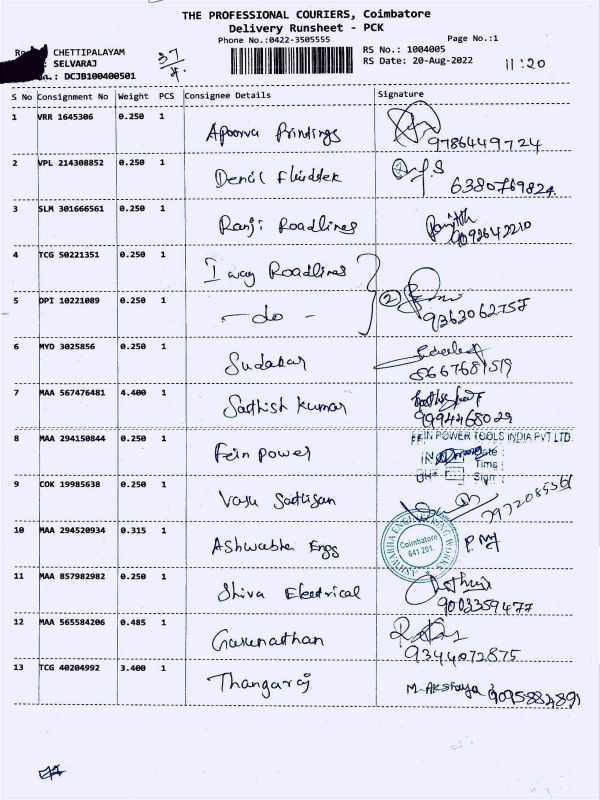 THE PROFESSIONAL COURIERS, Coimbatore
Delivery Runsheet - PCK
Phone No.:0422-3505555
Page No.:1
CHETTIPALAYAM
RS No.: 1004005
: SELVARAJ
RS Date: 20-Aug-2022
11:20
: DCJB100400501
37
S No Consignment No Weight PCS Consignee Details Signature
1 VRR 1645306 0.250 1 Apoorva Printings 9786449724
2 VPL 214308852 0.250 1 Denil Fluidtek 6380769824
3 SLM 301666561 0.250 1 Ranji Roadlines 9092642210
4 TCG 50221351 0.250 1 I way Roadlines
5 DPI 10221089 0.250 1 - do - 2 9363062757
6 MYD 3025856 0.250 1 Sudakar 8667681519
7 MAA 567476481 4.400 1 Sathish kumar 9994468029
8 MAA 294150844 0.250 1 Fein power
FEIN POWER TOOLS INDIA PVT LTD.
Time :
Sign :
9 COK 19985638 0.250 1 Vasu
10 MAA 294520934 0.315 1 Ashwabha Engg
ASHWABHA ENGINEERING WORKS
Coimbatore
641 201.
11 MAA 857982982 0.250 1 Shiva Electrical 9003359477
12 MAA 565584206 0.485 1 Gurunathan 9344072875
13 TCG 40204992 3.400 1 Thangaraj M. Akshaya 9095884891